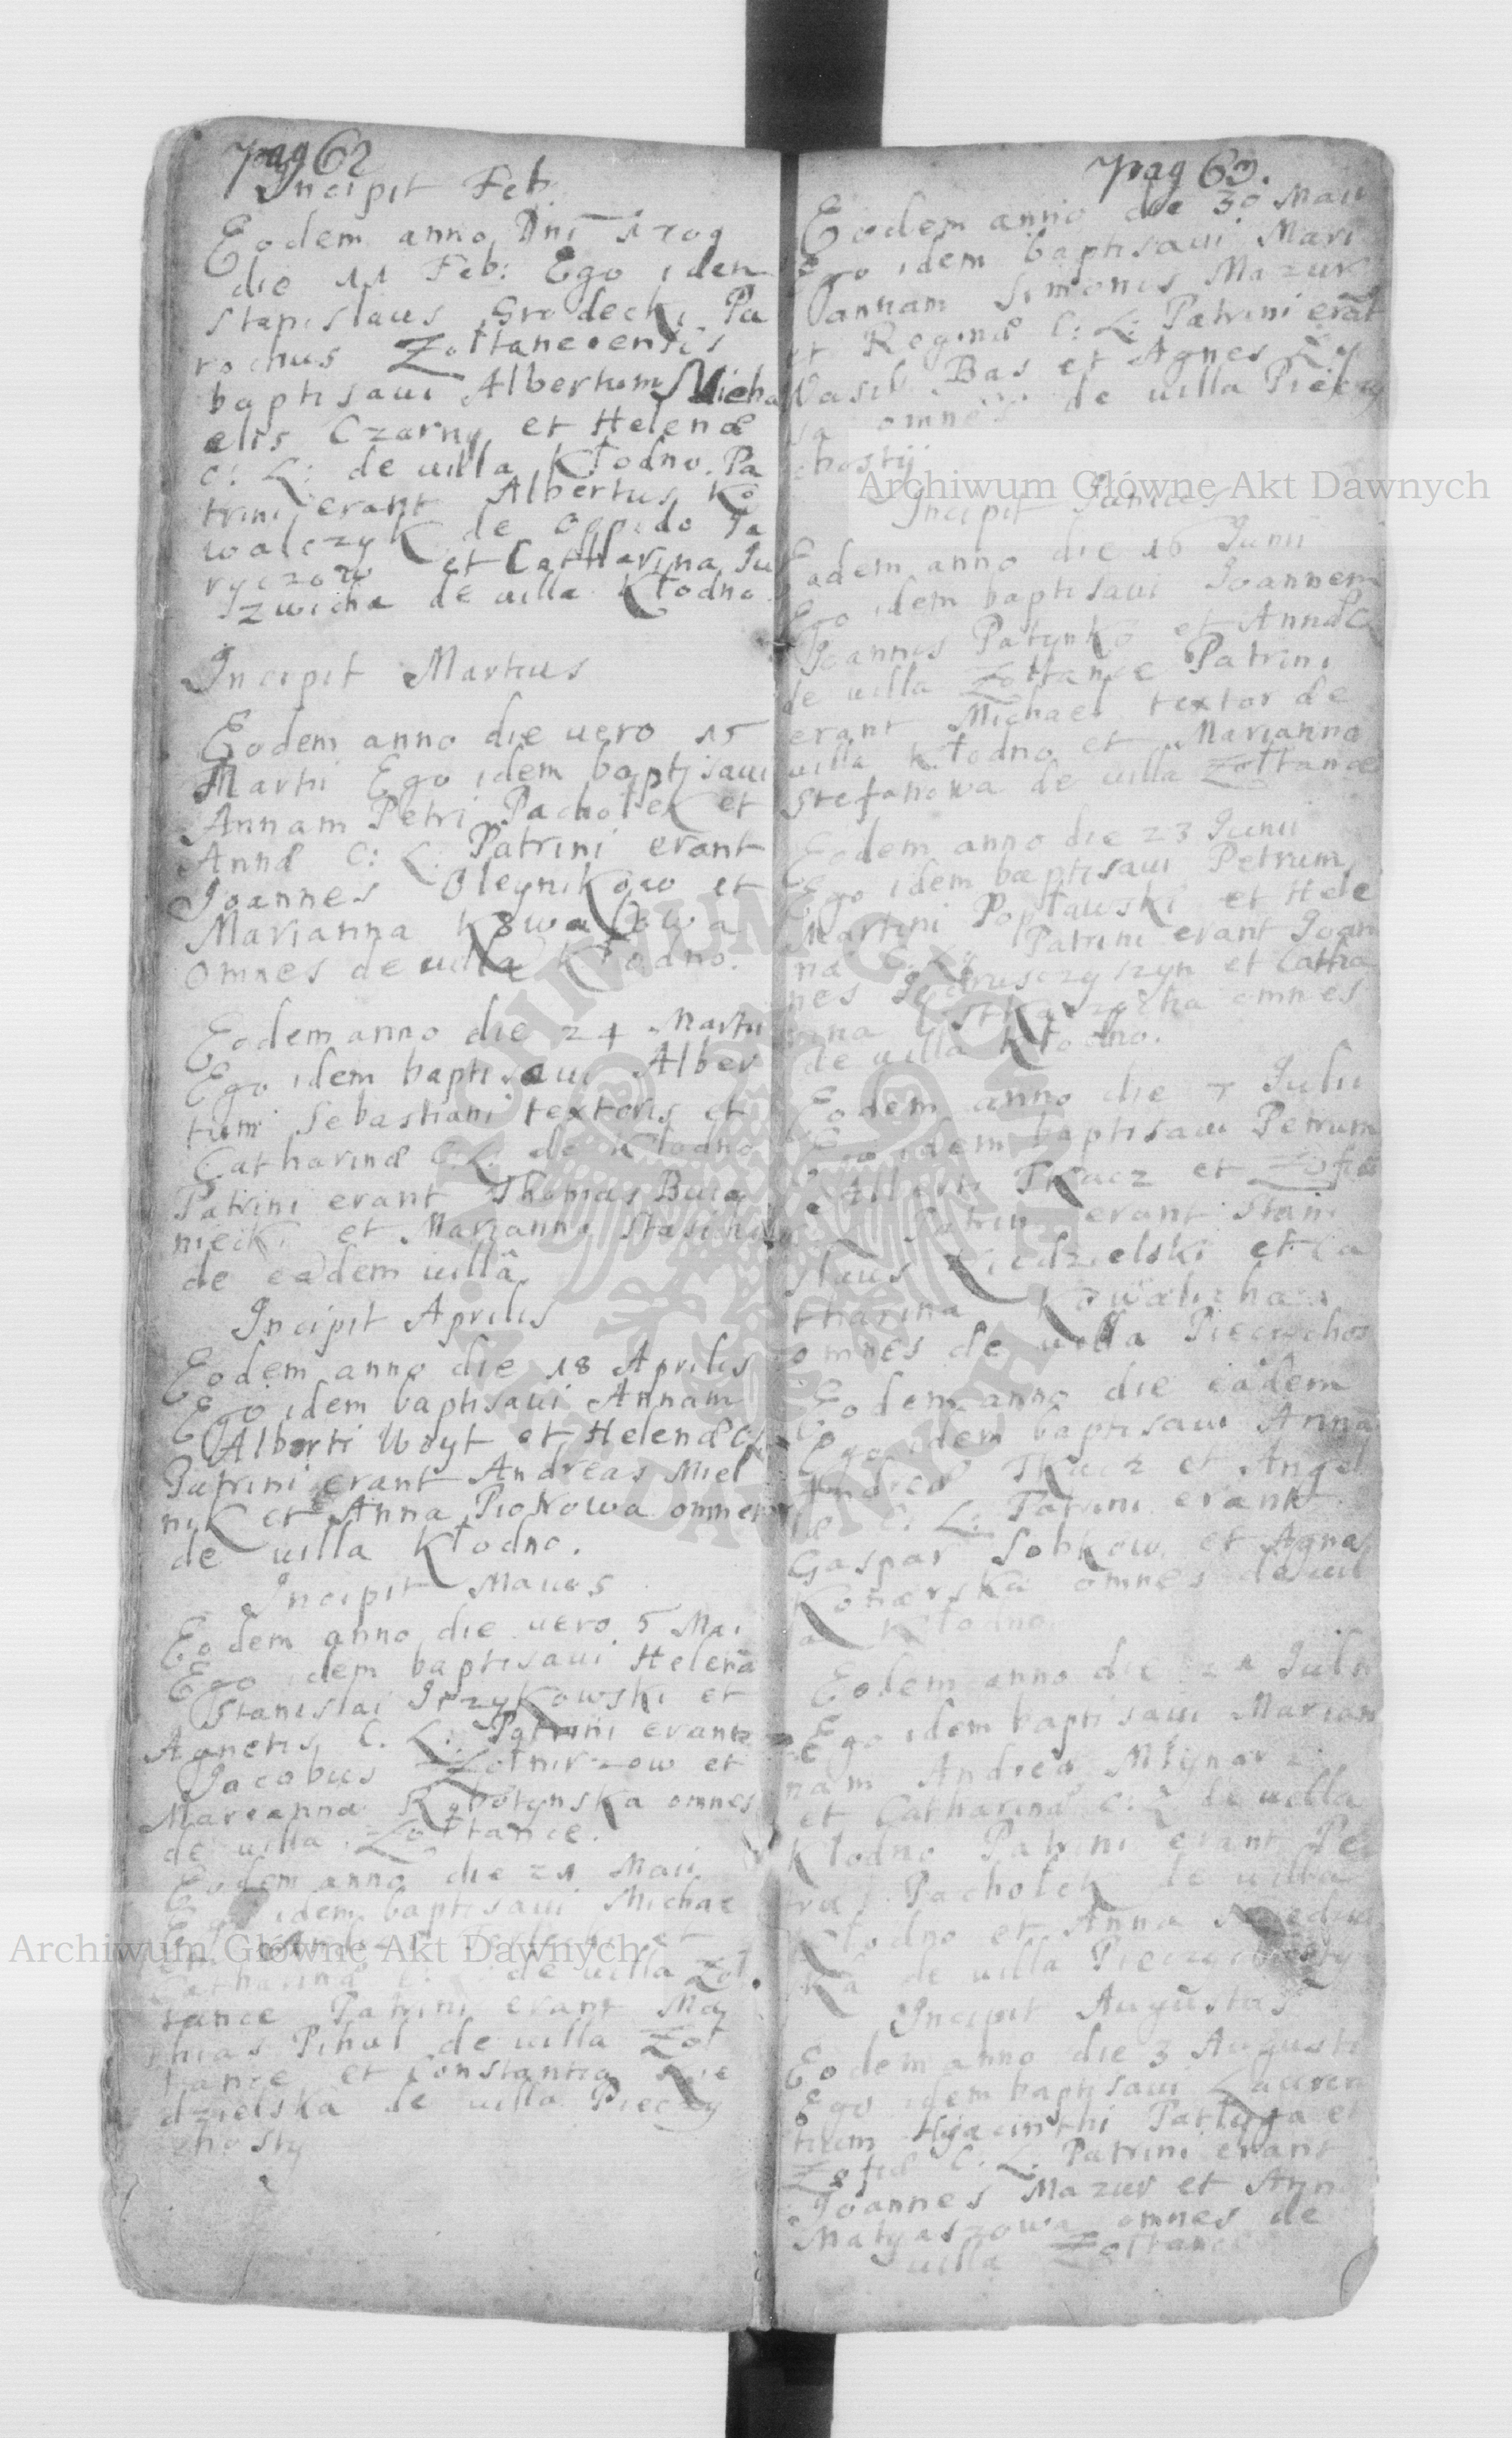 pag 62
Incipit Feb:
Eodem anno Dni 1709
die 11 Feb: Ego idem
Stanislaus Grodecki Pa
rochus Zołtanecensis
baptisaui Albertum Micha
elis Czarny et Helenæ
C: L: de uilla Kłodno. Pa
trini erant Albertus Ko
walczyk de oppido Ja
ryczow et Catharina Ju
zwicha de uilla Kłodno.
Incipit Martius
Eodem anno die uero 15
Martii Ego idem baptisaui
Annam Petri Pachołek et
Annæ C: L: Patrini erant
Joannes Oleynikow et
Marianna Kowalowa
omnes de uilla Kłodno.
Eodem anno die 24 Martii
Ego idem baptisaui Alber
tum Sebastiani textoris et
Catharinæ C: L: de Kłodno
Patrini erant Thomas
niecki et Marianna
de eadem uillâ
Incipit Aprilis
Eodem anno die 18 Aprilis
Ego idem baptisaui Annam
Alberti Woyt et Helenæ C:
Patrini erant Andreas Miel
nik et Anna Piotrowa omnes
de uilla Kłodno.
Incipit Maius
Eodem anno die uero 5 Mai
Ego idem baptisaui Helenã
Stanislai Irzykowski et
Agnetis C. L: Patrini erant
Jacobus Zołnirzow et
Marianna Robotynska omnes
de uilla Zołtance.
Eodem anno die 21 Maii
idem baptisaui Michae
et
Catharinæ C: L: de uilla Zoł
tance Patrini erant Ma
thias Pihul de uilla Zoł
tance et Constantia Kie
dzielska de uilla Pieczy
chosty
pag 63.
Eodem anno die 30 Maii
Ego idem baptisaui Mari
annam Simonis Mazur
et Reginæ C: L: Patrini erãt
Wasil Bas et Agnes Ły
sa omnes de uilla Pieczy
chostÿ
Incipit Junius
Eadem anno die 16 Junii
Ego idem baptisaui Joannem
Joannis Patynko et Annæ C
de uilla Zołtance Patrini
erant Michael textor de
uilla Kłodno et Marianna
Stefanowa de uilla Zołtance
Eodem anno die 23 Junii
Ego idem baptisaui Petrum
Martini Popławski et Hele
næ C: L: Patrini erant Joan
nes Jedrusczyszyn et Catha
rina omnes
de uilla Kłodno.
Eodem anno die 7 Julii
Ego idem baptisaui Petrum
Alberti Tkacz et Zofiæ
Patrini erant Stani
slaus Kiedzielski et Ca
tharina Kowalicha
omnes de uilla Pieczychos
Eodem anno die eadem
Ego idem baptisaui Annã
Andreæ Tkacz et Angel
læ C: L: Patrini erant
Gaspar Sobkow et Agnes
Konarska omnes de uil
a Kłodno
Eodem anno die 21 Julii
Ego idem baptisaui Marian
nam Andreæ Młynarz
et Catharinæ C: L de uilla
Kłodno Patrini erant Pe
trus Pachołek de uilla
Kłodno et Anna
ka de uilla Pieczychosty
Incipit Augustus
Eodem anno die 3 Augusti
Ego idem baptisaui Lauren
tium Hyacinthi Patluga et
Zofiæ C. L: Patrini erant
Joannes Mazur et Anna
Matyaszowa omnes de
uilla Zołtance
Archiwum Główne Akt Dawnych
Archiwum Główne Akt Dawnych
ARCHIWUM GŁÓWNE AKT DAWNYCH